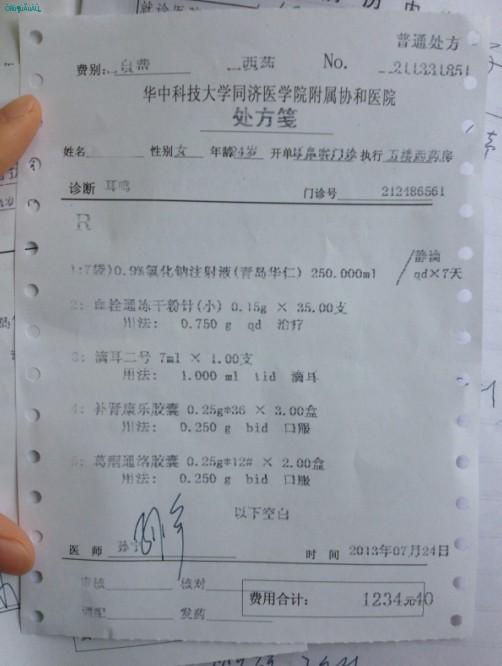 普通处方
费别: 自费 西药 No. 211331851
华中科技大学同济医学院附属协和医院
处方笺
姓名 性别 女 年龄 24岁 开单 耳鼻喉门诊 执行 五楼西药房
诊断 耳鸣 门诊号 212486561
R
1:7袋)0.9%氯化钠注射液(青岛华仁) 250.000ml /静滴
qd×7天
2: 血栓通冻干粉针(小) 0.15g × 35.00支
用法: 0.750 g qd 治疗
3: 滴耳二号 7ml × 1.00支
用法: 1.000 ml tid 滴耳
4: 补肾康乐胶囊 0.25g*36 × 3.00盒
用法: 0.250 g bid 口服
5: 葛酮通络胶囊 0.25g*12# × 2.00盒
用法: 0.250 g bid 口服
以下空白
医 师 时 间 2013年07月24日
审核 核对
调配 发药
费用合计: 1234元40